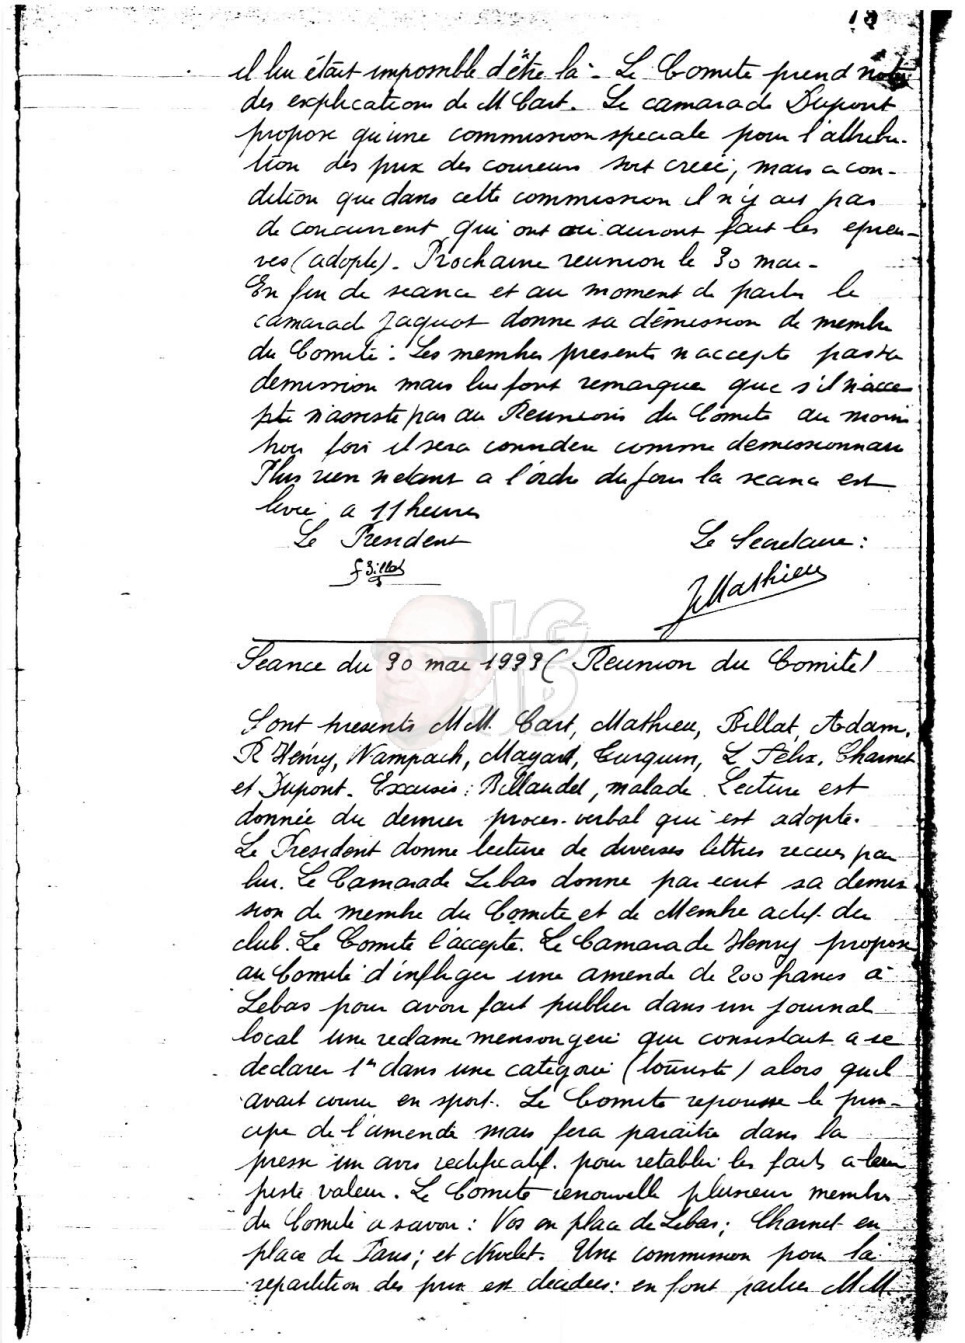 il lui était impossible d'être là - Le Comite prend note
des explications de M Cart. Le camarade Dupont
propose qu'une commission speciale pour l'attribu-
tion des prix des coureurs soit creeé, mais a con-
dition que dans cette commission il n'y ait pas
de concurrent qui ont ou auront fait les epreu-
ves (adopté). Prochaine reunion le 30 mai -
En fin de seance et au moment de partir le
camarade Jaquot donne sa démission de membre
du Comité : Les membres presents n'accepte pas sa
demission mais lui font remarque que s'il
n'assiste pas au Reunions du Comité au moins
trois fois il sera considere comme demissionnaire
Plus rien n'etant a l'ordre du jour la seance est
levée a 11 heures
Le President
Le Secretaire :
Billat
JMathieu
Seance du 30 mai 1933 ( Reunion du Comité )
Sont presents M.M. Cart, Mathieu, Billat, Adam,
R Henry, Wampach, Mayart, Turquin, L Felix, Charnet
et Dupont. Excusés : Billaudel, malade. Lecture est
donnée du dernier proces-verbal qui est adopte.
Le President donne lecture de diverses lettres recues par
lui. Le Camarade Lebas donne par ecrit sa demis
sion de membre du Comite et de Membre actif du
club. Le Comite l'accepte. Le Camarade Henry propose
au Comité d'infliger une amende de 200 francs à
Lebas pour avoir fait publier dans un journal
local une reclame mensongere qui consistait a se
declarer 1er dans une categorie (touriste) alors qu'il
avait couru en sport. Le Comite repousse le prin-
cipe de l'amende mais fera paraitre dans la
presse un avis rectificatif. pour retablir les faits a leur
juste valeur. Le Comite renouvelle plusieur membres
du Comité a savoir : Vos en place de Lebas ; Charnet en
place de Paris ; et Nivelet. Une commission pour la
repartition des prix est decidees : en font parties M.M.